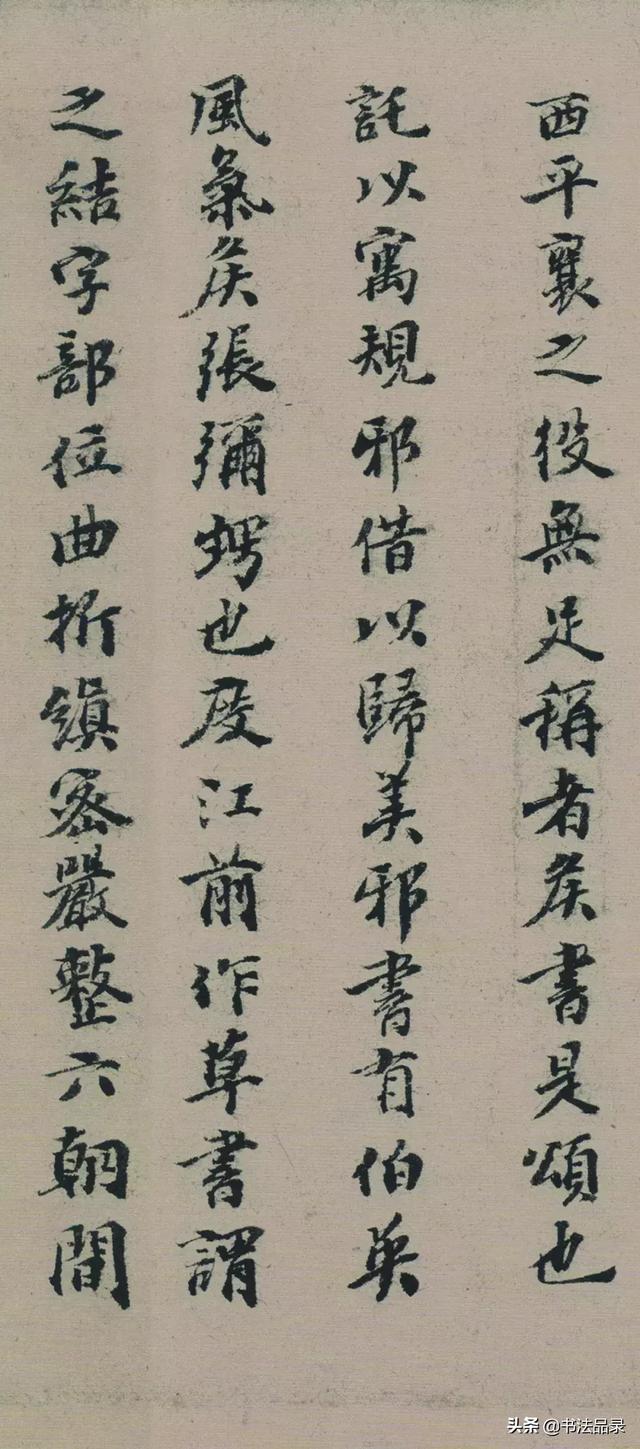 西平襄之役無足稱者矦書是頌也
託以寓規邪借以歸美邪書有伯英
風氣矦張彌甥也度江前作草書謂
之結字部位曲折縝密嚴整六朝間
头条 @书法品录